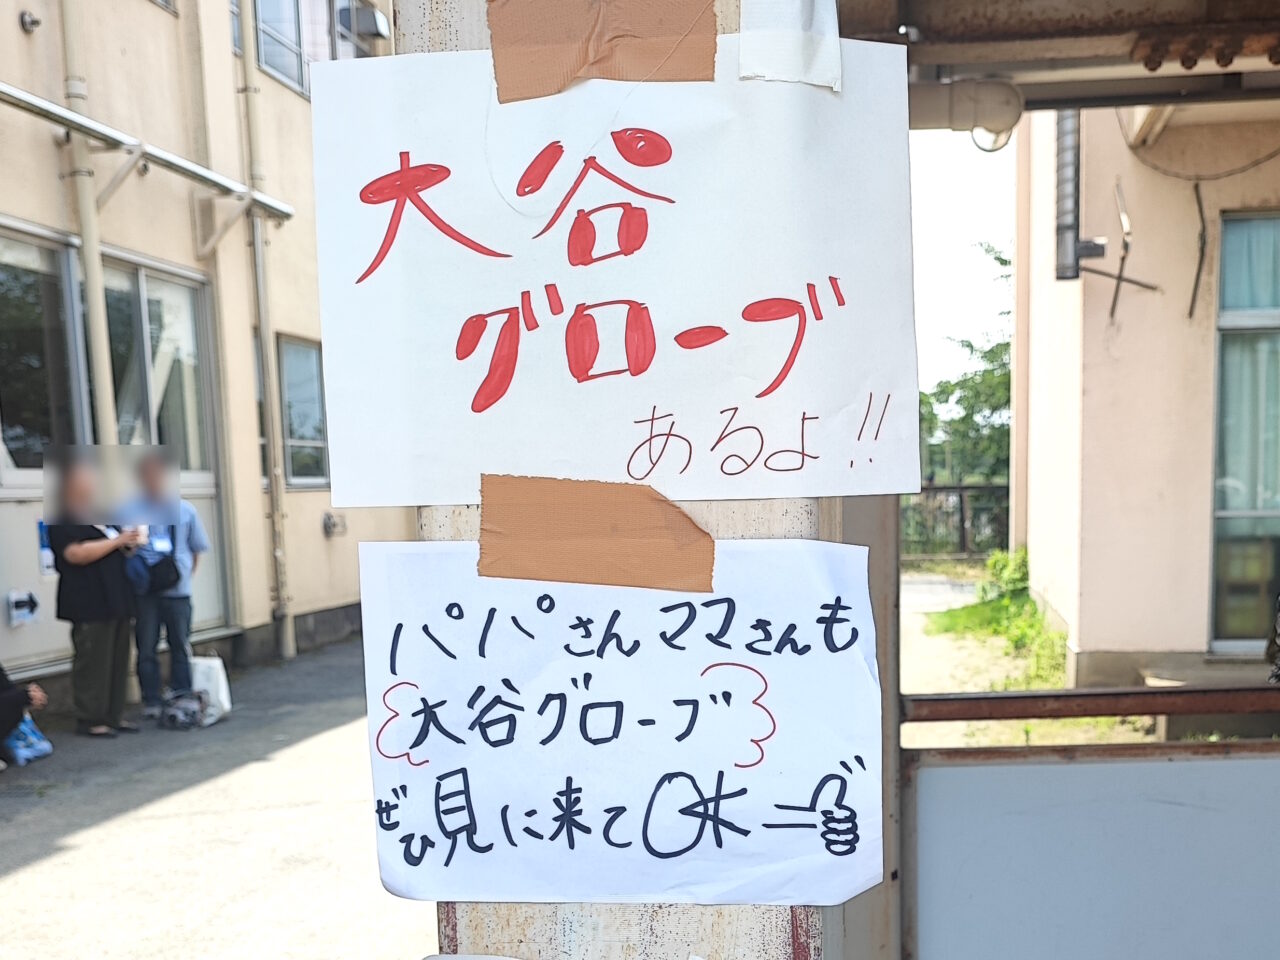 大谷
グローブ
あるよ!!
パパさんママさんも
大谷グローブ
ぜひ見に来てOK